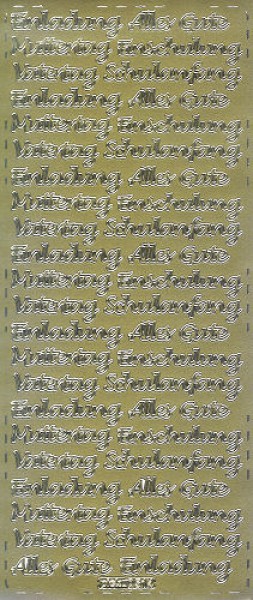 Einladung Alles Gute
Muttertag Einschulung
Vatertag Schulanfang
Einladung Alles Gute
Muttertag Einschulung
Vatertag Schulanfang
Einladung Alles Gute
Muttertag Einschulung
Vatertag Schulanfang
Einladung Alles Gute
Muttertag Einschulung
Vatertag Schulanfang
Einladung Alles Gute
Muttertag Einschulung
Vatertag Schulanfang
Einladung Alles Gute
Muttertag Einschulung
Vatertag Schulanfang
Einladung Alles Gute
Muttertag Einschulung
Vatertag Schulanfang
Alles Gute Einladung